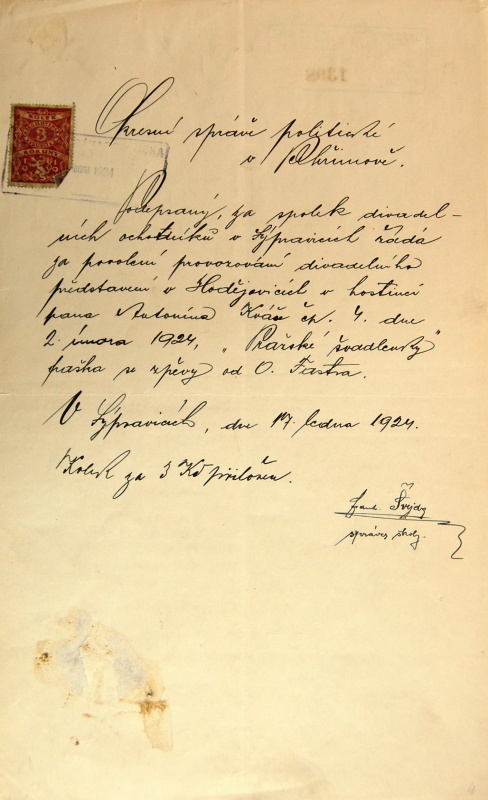 KOLEK
3
KORUNY
1398
Okresní správě politické
v Pelhřimově.
Podepsaný, za spolek divadel-
ních ochotníků v Sýpravicích žádá
za povolení provozování divadelního
představení v Hodějovicích v hostinci
pana Antonína Kváš čp. 4. dne
2. února 1924, „Pražské švadlenky"
fraška se zpěvy od O. Fastra.
V Sýpravicích, dne 17. ledna 1924.
Kolek za 3 Kč přiložen.
Frant. Švejdy
správce školy.